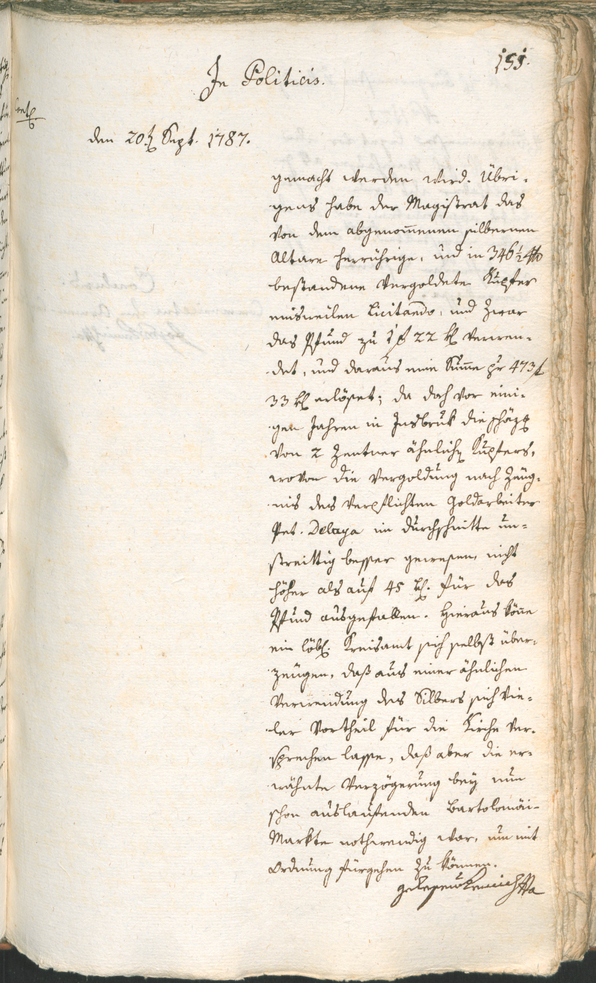 In Politicis.
151.
den 20.t Sept. 1787.
gemacht werden wird. Übri-
gens habe der Magistrat das
von dem abgenommenen silbernen
Altare herrührige, und in 346½ ℔
bestandene vergoldete Kupfer
einsweilen licitando, und zwar
das Pfund zu 1 f 22 kr verwen-
det, und daraus eine Summe pr 473 f
33 kr erlöset; da doch vor eini-
gen Jahren in Insbruk die schäzg
von 2 Zentner ähnlichn Kupfers,
wovon die Vergoldung nach Zeüg-
nis des verpflichten Goldarbeiter
Pet. Delaya im durchschnitte un-
streittig besser gewesen, nicht
höher als auf 45 kr. für das
Pfund ausgefallen. Hieraus könne
ein löbl. Kreisamt sich selbst über-
zeügen, daß aus einer ähnlichen
Verwendung des Silbers sich vie-
ler Vortheil für die Kirche ver-
sprechen lasse, daß aber die er-
wähnte Verzögerung bey nun
schon auslaufenden Bartolomäi-
Markte nothwendig war, um mit
Ordnung fürgehen zu können.